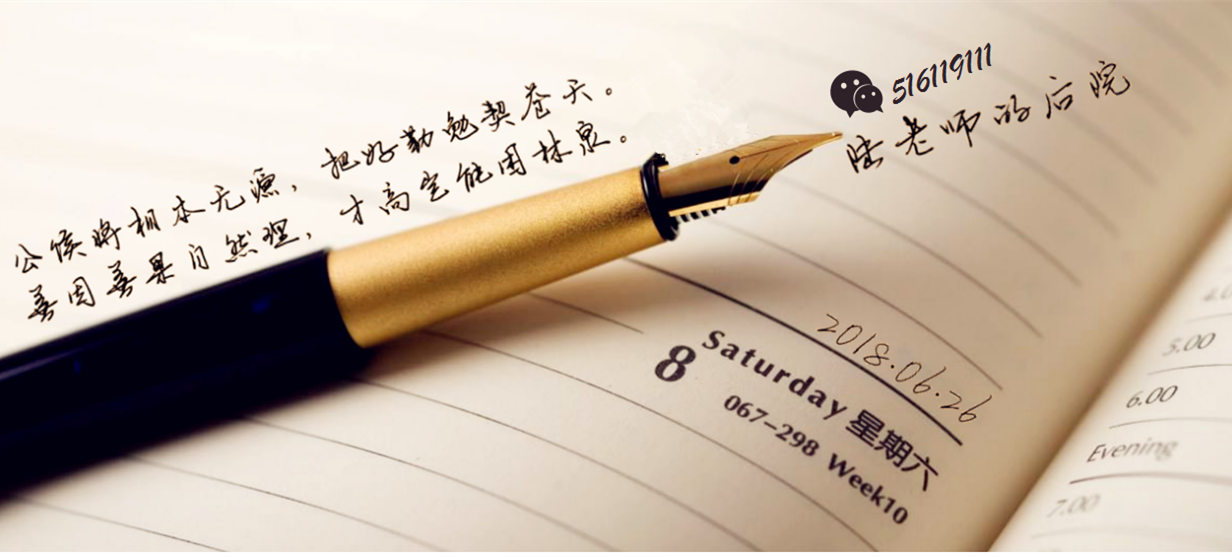 公侯将相本无源，把好勤勉契苍天。
善因善果自然理，才高岂能困林泉。
516119111
陆老师的后院
2018.06.26
8 Saturday 星期六
067-298 Week10
5.00
6.00
Evening
7.00